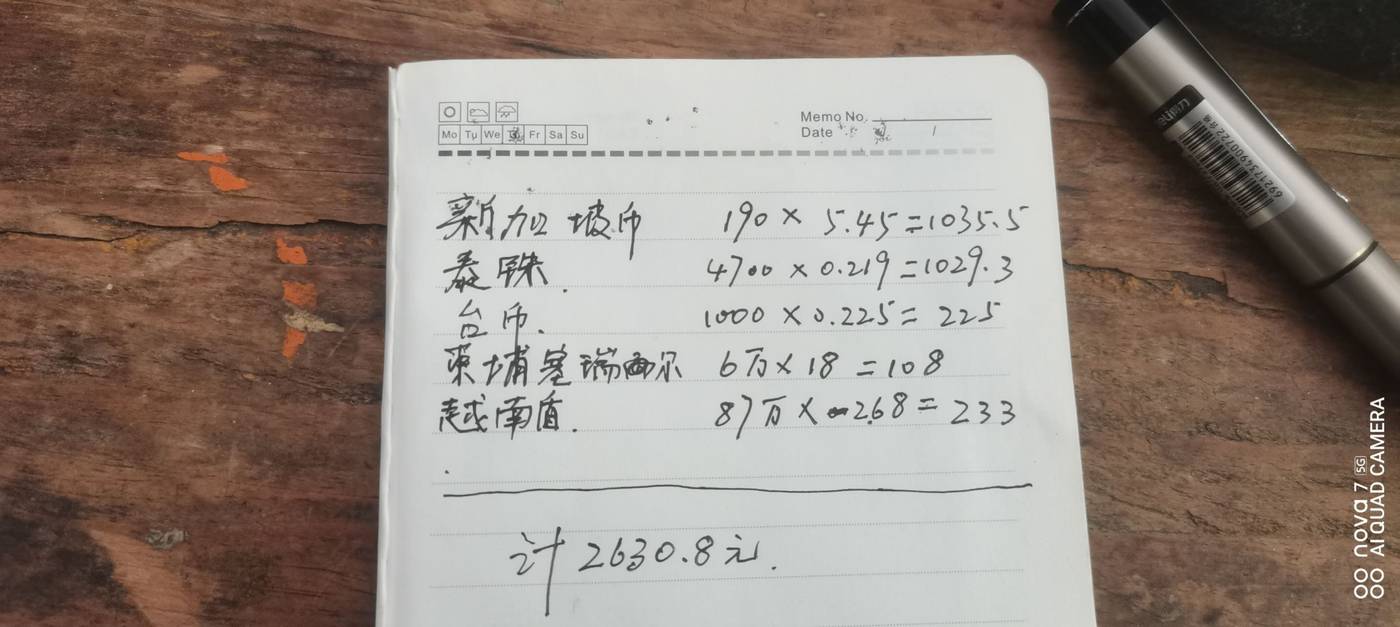 Mo Tu We Fr Sa Su
Memo No.
Date /
新加坡币 190 × 5.45=1035.5
泰铢. 4700 × 0.219=1029.3
台币. 1000 × 0.225= 225
柬埔寨瑞西尔 6万×18=108
越南盾. 87万×268= 233
计2630.8元.
deli 得力
6921734900722
nova 7 5G
AI QUAD CAMERA